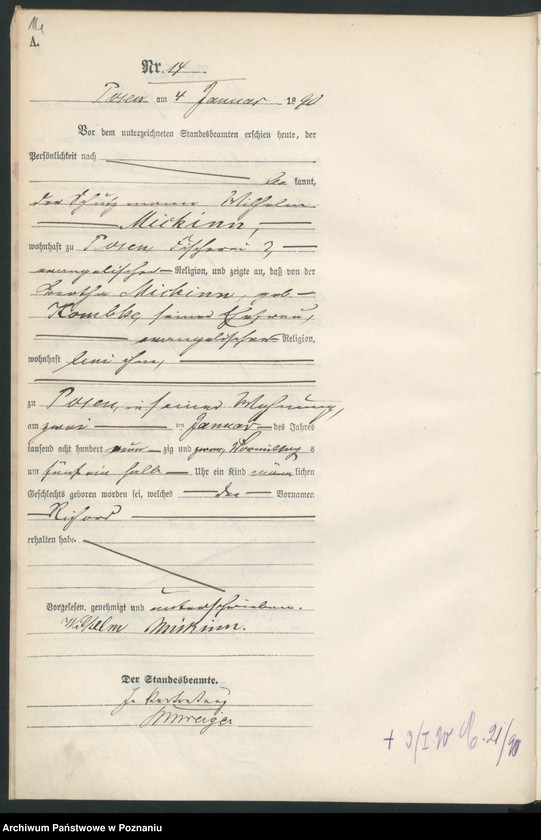 A.
Nr. 14
Posen am 4 Januar 1890
Vor dem unterzeichneten Standesbeamten erschien heute, der
Persönlichkeit nach
be kannt,
der Schutzmann Wilhelm
Mickinn,
wohnhaft zu Posen Fischerei 2,
evangelischer Religion, und zeigte an, daß von der
Bertha Mickinn, geb.
seiner Ehefrau,
evangelischer Religion,
wohnhaft bei ihm,
zu Posen, in seiner Wohnung,
am zwei ten Januar des Jahres
tausend acht hundert neun zig und Vormittag s
um fünf ein halb Uhr ein Kind männ lichen
Geschlechts geboren worden sei, welches den Vornamen
Richard
erhalten habe.
Vorgelesen, genehmigt und unterschrieben.
Wilhelm Mickinn.
Der Standesbeamte.
In Vertretung
+ 3/I 90 21/90
Archiwum Państwowe w Poznaniu